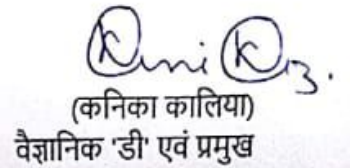 (कनिका कालिया)
वैज्ञानिक 'डी' एवं प्रमुख